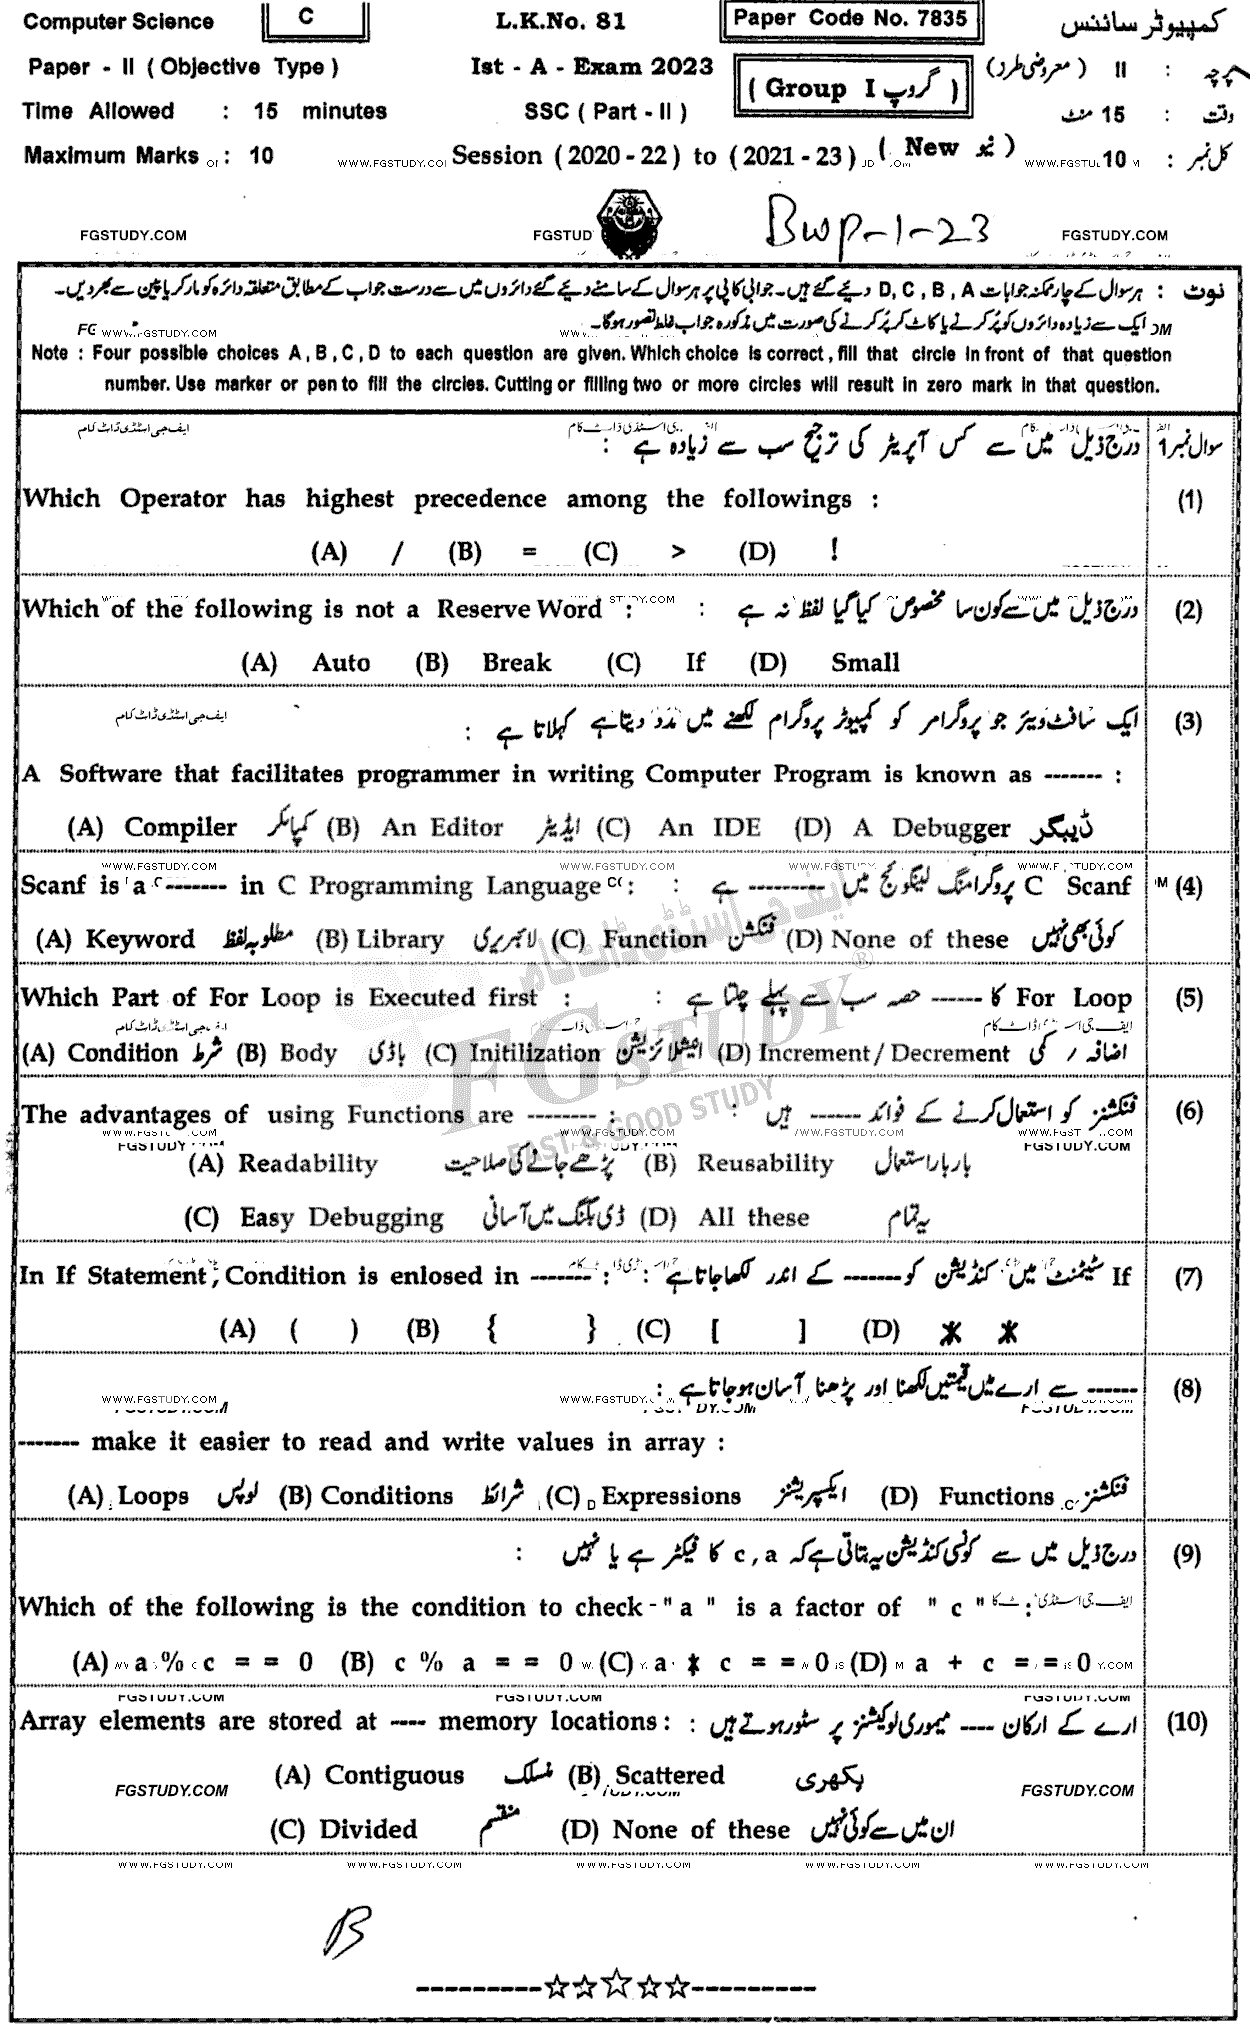 Computer Science C L.K.No. 81 Paper Code No. 7835 کمپیوٹر سائنس
Paper - II ( Objective Type ) Ist - A - Exam 2023 ( Group I گروپ ) پرچہ : II ( معروضی طرز )
Time Allowed : 15 minutes SSC ( Part - II ) وقت : 15 منٹ
Maximum Marks : 10 WWW.FGSTUDY.CO Session ( 2020 - 22 ) to ( 2021 - 23 ) ( New نیو ) کل نمبر : 10
FGSTUDY.COM FGSTUD Bwp-1-23 FGSTUDY.COM
نوٹ : ہر سوال کے چار ممکنہ جوابات D , C , B , A دیئے گئے ہیں۔ جوابی کاپی پر ہر سوال کے سامنے دیئے گئے دائروں میں سے درست جواب کے مطابق متعلقہ دائرہ کو مارکر یا پین سے بھر دیں۔
ایک سے زیادہ دائروں کو پُر کرنے یا کاٹ کر پُر کرنے کی صورت میں مذکورہ جواب غلط تصور ہوگا۔
Note : Four possible choices A , B , C , D to each question are given. Which choice is correct , fill that circle in front of that question
number. Use marker or pen to fill the circles. Cutting or filling two or more circles will result in zero mark in that question.
سوال نمبر 1 درج ذیل میں سے کس آپریٹر کی ترجیح سب سے زیادہ ہے :
Which Operator has highest precedence among the followings : (1)
(A) / (B) = (C) > (D) !
Which of the following is not a Reserve Word : : درج ذیل میں سے کون سا مخصوص کیا گیا لفظ نہ ہے (2)
(A) Auto (B) Break (C) If (D) Small
ایک سافٹ ویئر جو پروگرامر کو کمپیوٹر پروگرام لکھنے میں مدد دیتا ہے کہلاتا ہے : (3)
A Software that facilitates programmer in writing Computer Program is known as ------- :
(A) Compiler کمپائلر (B) An Editor ایڈیٹر (C) An IDE (D) A Debugger ڈیبگر
WWW.FGSTUDY.COM WWW.FGSTUDY.COM
Scanf is a ------- in C Programming Language : : C Scanf پروگرامنگ لینگوئج میں --------- ہے (4)
(A) Keyword مطلوبہ لفظ (B) Library لائبریری (C) Function فنکشن (D) None of these کوئی بھی نہیں
Which Part of For Loop is Executed first : : For Loop کا ------ حصہ سب سے پہلے چلتا ہے (5)
(A) Condition شرط (B) Body باڈی (C) Initilization انیشلائزیشن (D) Increment / Decrement اضافہ / کمی
The advantages of using Functions are -------- : : فنکشنز کو استعمال کرنے کے فوائد ------ ہیں (6)
(A) Readability پڑھے جانے کی صلاحیت (B) Reusability بار بار استعمال
(C) Easy Debugging ڈی بگنگ میں آسانی (D) All these یہ تمام
In If Statement , Condition is enlosed in ------- : : If سٹیٹمنٹ میں کنڈیشن کو ------- کے اندر لکھا جاتا ہے (7)
(A) ( ) (B) { } (C) [ ] (D) * *
------ سے ارے میں قیمتیں لکھنا اور پڑھنا آسان ہو جاتا ہے : (8)
------- make it easier to read and write values in array :
(A) Loops لوپس (B) Conditions شرائط (C) Expressions ایکسپریشنز (D) Functions فنکشنز
درج ذیل میں سے کونسی کنڈیشن یہ بتاتی ہے کہ c , a کا فیکٹر ہے یا نہیں : (9)
Which of the following is the condition to check - " a " is a factor of " c " :
(A) a % c = = 0 (B) c % a = = 0 (C) a * c = = 0 (D) a + c = = 0
Array elements are stored at ---- memory locations : : ارے کے ارکان ---- میموری لوکیشنز پر سٹور ہوتے ہیں (10)
(A) Contiguous منسلک (B) Scattered بکھری
FGSTUDY.COM FGSTUDY.COM
(C) Divided منقسم (D) None of these ان میں سے کوئی نہیں
WWW.FGSTUDY.COM WWW.FGSTUDY.COM WWW.FGSTUDY.COM WWW.FGSTUDY.COM WWW.FGSTUDY.COM
B
ایف جی اسٹڈی ڈاٹ کام
FG STUDY ®
FAST & GOOD STUDY